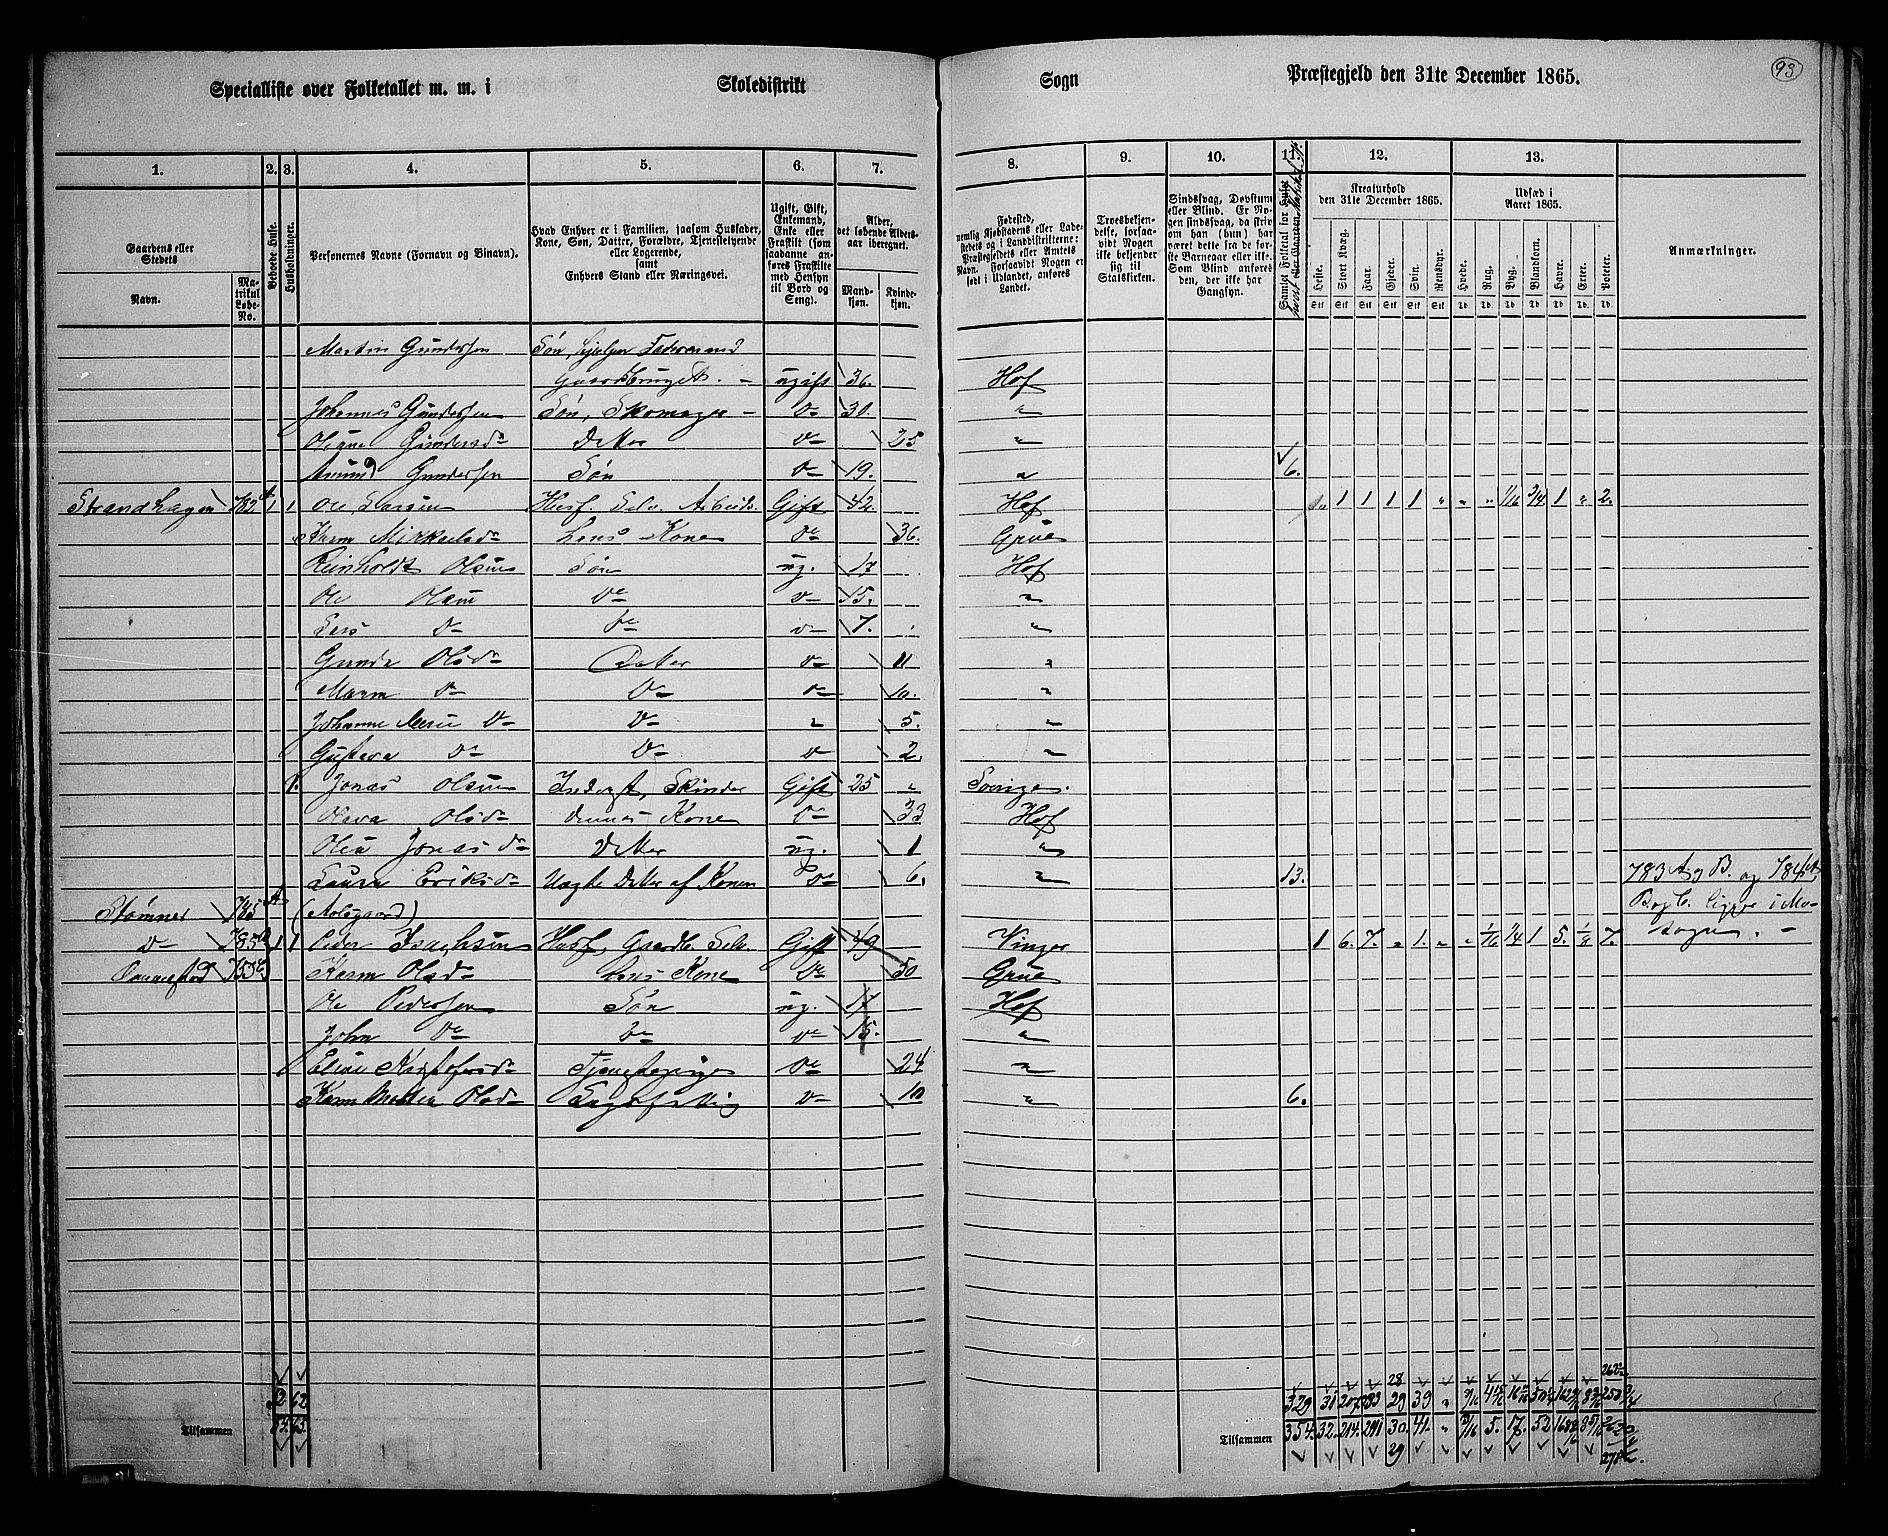 93
Specialliste over Folketallet m. m. i Skoledistrikt Sogn Præstegjeld den 31te December 1865.
1. 2. 3. 4. 5. 6. 7. 8. 9. 10. 11. 12. 13.
Gaardens eller Stedets
Navn.
Matrikul Løbe-No.
Beboede Huse.
Husholdninger.
Personernes Navne (Fornavn og Binavn).
Hvad Enhver er i Familien, saasom Husfader, Kone, Søn, Datter, Forældre, Tjenestetyende eller Logerende, samt Enhvers Stand eller Næringsvei.
Ugift, Gift, Enkemand, Enke eller Fraskilt (som saadanne anføres Fraskilte med Hensyn til Bord og Seng).
Alder, det løbende Alders-aar iberegnet.
Mandkjøn. Kvindekjøn.
Fødested, nemlig Kjøbstadens eller Ladestedets og i Landdistrikterne: Præstegjeldets eller Amtets Navn. Forsaavidt Nogen er født i Udlandet, anføres Landet.
Troesbekjendelse, forsaavidt Nogen ikke bekjender sig til Statskirken.
Sindssvag, Døvstum eller Blind. Er Nogen sindssvag, da skriv om han (hun) har været dette fra de første Barneaar eller ikke. Som Blind anføres den, der ikke har Gangsyn.
Kreaturhold den 31te December 1865.
Heste. Stort Kvæg. Faar. Gjeder. Svin. Rensdyr.
Udsæd i Aaret 1865.
Hvede. Rug. Byg. Blandkorn. Havre. Erter. Poteter.
Anmærkninger.
Martin Gundersen Søn, hjelper Faderen med
Gaardsbruget. ugift 36. Hof
Johannes Gundersen Søn, Skomager do 30. "
Gundersd. Datter do 25 "
Amund Gundersen Søn do 19. " 6.
Strandhagen 782 A 1 1 Ole Larsen Husf. Selv. Arbeids. Gift 42. Hof 1 1 1 1 " " " 1/16 3/4 1 " 2.
Karen Mikkelsd. Hans Kone do 36. Grue
Reinholdt Olsen Søn ug. 17 Hof
Ole Olsen do do 15. "
Lars do do do 7. "
Gunda Olsd. Datter do 11 "
Maren do do do 10. "
Johanne do do " 5. "
Gustava do do do 2. "
1. Jonas Olsen Inderst, Skinder Gift 25 " Sverige.
Olsd. dennes Kone do 33 Hof
Jonasd. Datter ug. 1 "
Laura Eriksd. Uægte Datter af Konen do 6. " 13.
783 A og B. og 784 A,
B og C. ligger i Mo-
Sogn.
Stømner 785 A (Aalsgaard)
do 785 B 1 1 Peder Isachsen Husf. Gaardb. Selv. Gift 49 Vinger 1 6. 7. " 1. " " 1/16 1/4 1 5. 1/8 7.
Karen Olsd. Hans Kone do 50 Grue
Ole Pedersen Søn ug. 17 Hof
John do do do 15. "
Tjenestepige do 24 "
Karen Olsd. do 10 " 6.
52 62 329 31 207 283 29 39 "
Tilsammen 354. 32. 214. 291 30. 41. " 5. 17. 52
28
29